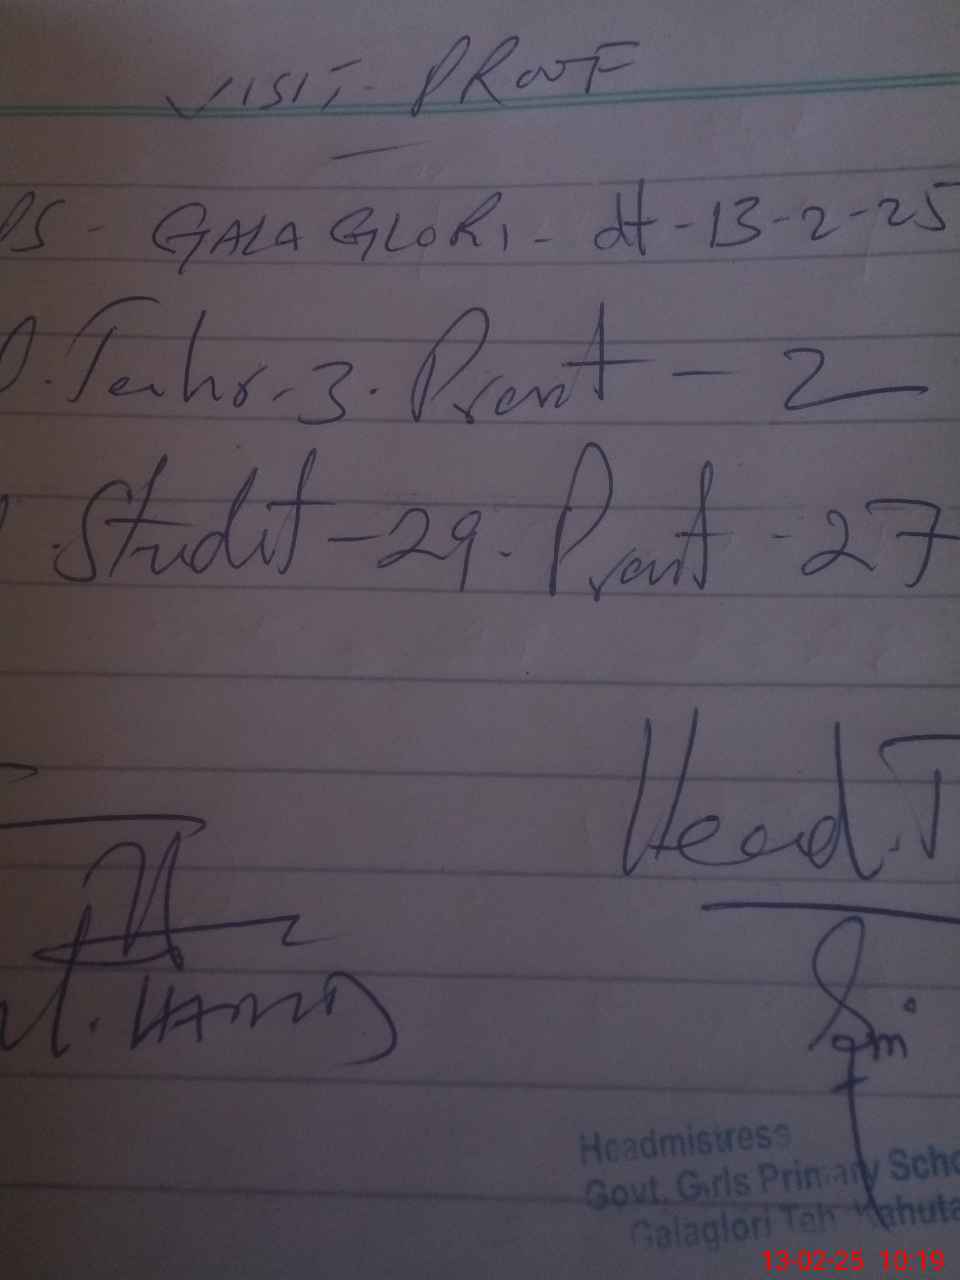 VISIT - PROOF
PS - GALA GLORI - dt - 13-2-25
Techr - 3. Presnt - 2
Studet - 29 - Presnt - 27
Head. T
M. HAMID
Headmistress
Govt. Girls Primary Scho
Galaglori Teh Kahuta
13-02-25 10:19